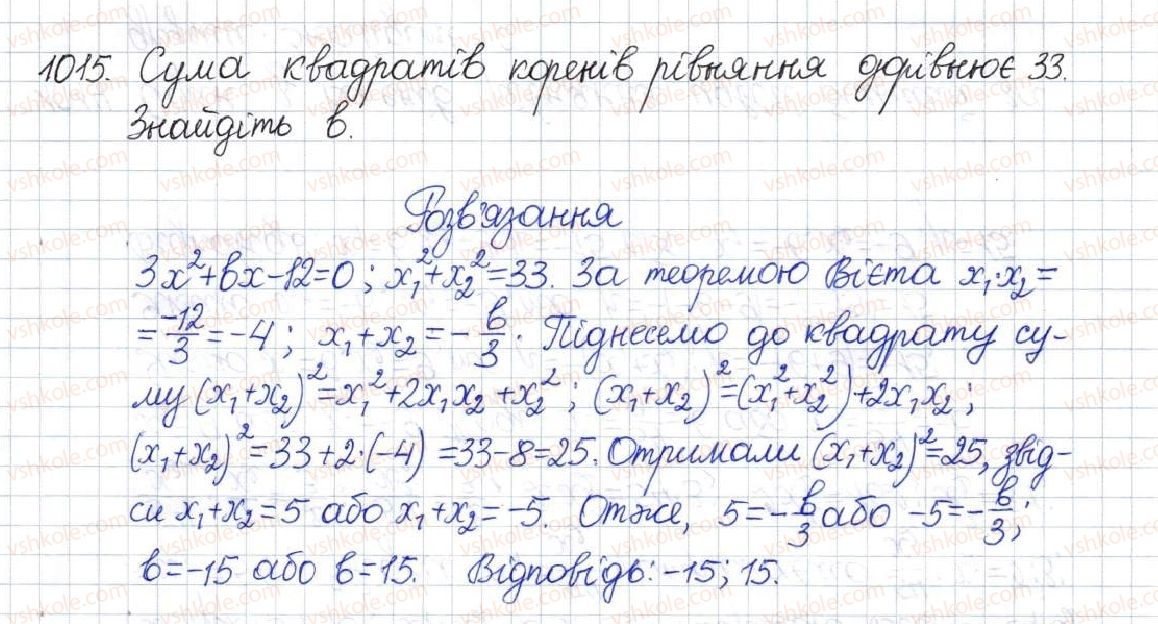 1015. Сума квадратів коренів рівняння дорівнює 33.
Знайдіть b.
Розв'язання
3x²+bx-12=0; x₁²+x₂²=33. За теоремою Вієта x₁·x₂=
=-12/3=-4; x₁+x₂=-b/3. Піднесемо до квадрату су-
му (x₁+x₂)²=x₁²+2x₁x₂+x₂²; (x₁+x₂)²=(x₁²+x₂²)+2x₁x₂;
(x₁+x₂)²=33+2·(-4)=33-8=25. Отримали (x₁+x₂)²=25, звід-
си x₁+x₂=5 або x₁+x₂=-5. Отже, 5=-b/3 або -5=-b/3;
b=-15 або b=15. Відповідь: -15; 15.